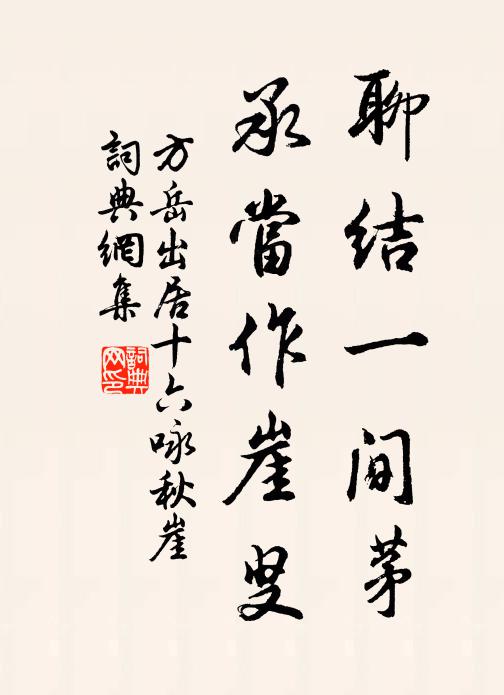 聊結一間茅
承當作崖叟
方岳出居十六咏秋崖
詞典網集
詞典网印